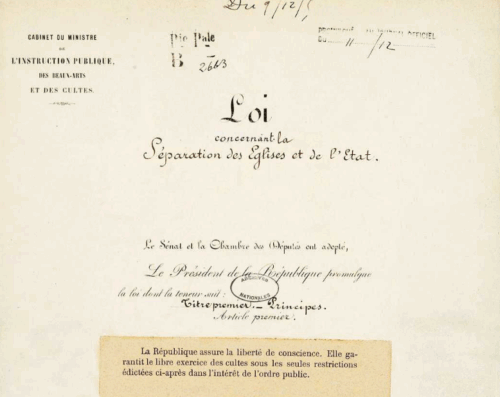 Du 9/12/5
CABINET DU MINISTRE
DE
L'INSTRUCTION PUBLIQUE,
DES BEAUX-ARTS
ET DES CULTES.
B 2663
JOURNAL OFFICIEL
Du 11/12
Loi
concernant la
Séparation des Eglises et de l'Etat.
Le Sénat et la Chambre des Députés ont adopté,
Le Président de la République promulgue
la loi dont la teneur suit :
ARCHIVES
NATIONALES
Titre premier. — Principes.
Article premier.
La République assure la liberté de conscience. Elle ga-
rantit le libre exercice des cultes sous les seules restrictions
édictées ci-après dans l'intérêt de l'ordre public.